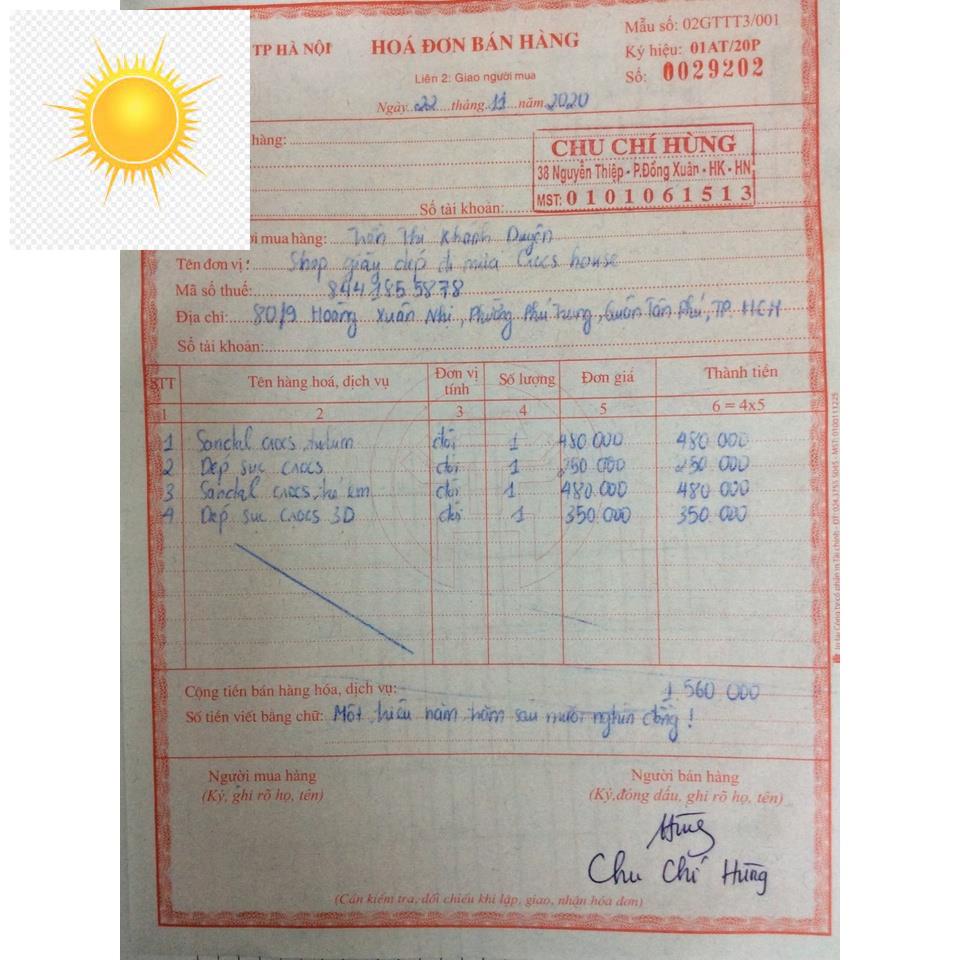 TP HÀ NỘI
HOÁ ĐƠN BÁN HÀNG
Liên 2: Giao người mua
Ngày 22 tháng 11 năm 2020
Mẫu số: 02GTTT3/001
Ký hiệu: 01AT/20P
Số: 0029202
hàng:
CHU CHÍ HÙNG
38 Nguyễn Thiệp - P.Đồng Xuân - HK - HN
MST: 0101061513
Số tài khoản:
mua hàng: Trần Thị Khánh Duyên
Tên đơn vị: Shop giày dép đi mưa Crocs house
Mã số thuế: 8441855878
Địa chỉ: 80/9 Hoàng Xuân Nhị, Phường Phú Trung, Quận Tân Phú, TP. HCM
Số tài khoản:
STT Tên hàng hoá, dịch vụ Đơn vị tính Số lượng Đơn giá Thành tiền
1 2 3 4 5 6 = 4x5
1 Sandal crocs đôi 1 480 000 480 000
2 Dép sục crocs đôi 1 250 000 250 000
3 Sandal crocs trẻ em đôi 1 480 000 480 000
4 Dép sục crocs 3D đôi 1 350 000 350 000
Cộng tiền bán hàng hóa, dịch vụ: 1 560 000
Số tiền viết bằng chữ: Một triệu năm trăm sáu mươi nghìn đồng!
Người mua hàng Người bán hàng
(Ký, ghi rõ họ, tên) (Ký,đóng dấu, ghi rõ họ, tên)
Hùng
Chu Chí Hùng
(Cần kiểm tra, đối chiếu khi lập, giao, nhận hóa đơn)